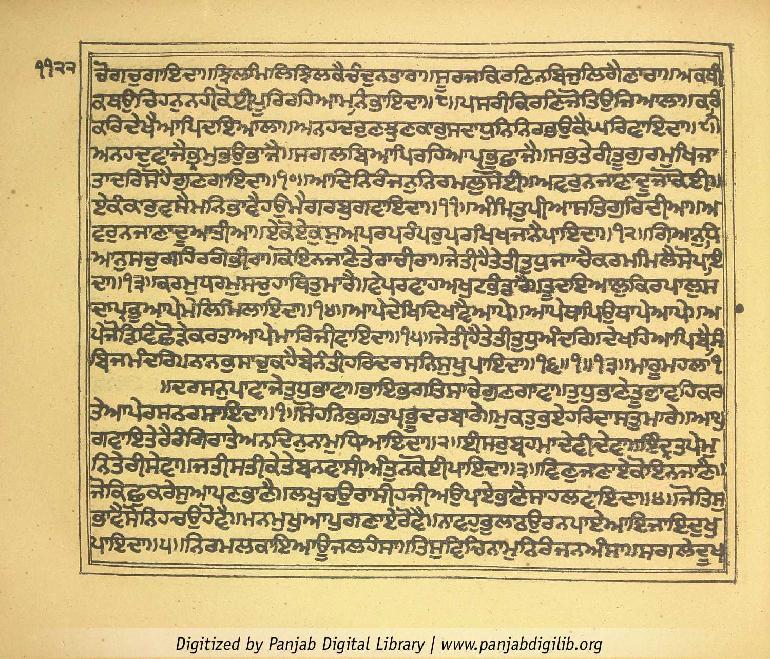 ੧੧੨੨
ਚੋਗਚੁਗਾਇਦਾ॥ਝਿਲਮਿਲਿਝਿਲਕੈਚੰਦੁਨਤਾਰਾ॥ਸੂਰਜਕਿਰਣਿਨਬਿਜੁਲਿਗੈਣਾਰਾ॥ਅਕਥੀ
ਕਥਉਚਿਹਨੁਨਹੀਕੋਈਪੂਰਿਰਹਿਆਮਨਿਭਾਇਦਾ॥੮॥ਪਸਰੀਕਿਰਣਿਜੋਤਿਉਜਿਆਲਾ॥ਕਰਿ
ਕਰਿਦੇਖੈਆਪਿਦਇਆਲਾ॥ਅਨਹਦਰੁਣਝੁਣਕਾਰੁਸਦਾਧੁਨਿਨਿਰਭਉਕੈਘਰਿਵਾਇਦਾ॥੯॥
ਅਨਹਦੁਵਾਜੈਭ੍ਰਮੁਭਉਭਾਜੈ॥ਸਗਲਬਿਆਪਿਰਹਿਆਪ੍ਰਭੁਛਾਜੈ॥ਸਭਤੇਰੀਤੂਗੁਰਮੁਖਿਜਾ
ਤਾਦਰਿਸੋਹੈਗੁਣਗਾਇਦਾ॥੧੦॥ਆਦਿਨਿਰੰਜਨੁਨਿਰਮਲੁਸੋਈ॥ਅਵਰੁਨਜਾਣਾਦੂਜਾਕੋਈ॥
ਏਕੰਕਾਰੁਵਸੈਮਨਿਭਾਵੈਹਉਮੈਗਰਬੁਗਵਾਇਦਾ॥੧੧॥ਅੰਮ੍ਰਿਤੁਪੀਆਸਤਿਗੁਰਿਦੀਆ॥ਅ
ਵਰੁਨਜਾਣਾਦੂਆਤੀਆ॥ਏਕੋਏਕੁਸੁਅਪਰਪਰੰਪਰੁਪਰਖਿਖਜਾਨੈਪਾਇਦਾ॥੧੨॥ਗਿਆਨੁਧਿ
ਆਨੁਸਚੁਗਹਿਰਗੰਭੀਰਾ॥ਕੋਇਨਜਾਣੈਤੇਰਾਚੀਰਾ॥ਜੇਤੀਹੈਤੇਤੀਤੁਧੁਜਾਚੈਕਰਮਿਮਿਲੈਸੋਪਾਇ
ਦਾ॥੧੩॥ਕਰਮੁਧਰਮੁਸਚੁਹਾਥਿਤੁਮਾਰੈ॥ਵੇਪਰਵਾਹਅਖੁਟਭੰਡਾਰੈ॥ਤੂਦਇਆਲੁਕਿਰਪਾਲੁਸ
ਦਾਪ੍ਰਭੁਆਪੇਮੇਲਿਮਿਲਾਇਦਾ॥੧੪॥ਆਪੇਦੇਖਿਦਿਖਾਵੈਆਪੇ॥ਆਪੇਥਾਪਿਉਥਾਪੇਆਪੇ॥ਆ
ਪੇਜੋੜਿਵਿਛੋੜੇਕਰਤਾਆਪੇਮਾਰਿਜੀਵਾਇਦਾ॥੧੫॥ਜੇਤੀਹੈਤੇਤੀਤੁਧੁਅੰਦਰਿ॥ਦੇਖਹਿਆਪਿਬੈਸਿ
ਬਿਜਮੰਦਰਿ॥ਨਾਨਕੁਸਾਚੁਕਹੈਬੇਨੰਤੀਹਰਿਦਰਸਨਿਸੁਖੁਪਾਇਦਾ॥੧੬॥੧॥੧੩॥ਮਾਰੂਮਹਲਾ੧
॥ਦਰਸਨੁਪਾਵਾਜੇਤੁਧੁਭਾਵਾ॥ਭਾਇਭਗਤਿਸਾਚੇਗੁਣਗਾਵਾ॥ਤੁਧੁਭਾਣੇਤੂਭਾਵਹਿਕਰ
ਤੇਆਪੇਰਸਨਰਸਾਇਦਾ॥੧॥ਸੋਹਨਿਭਗਤਪ੍ਰਭੂਦਰਬਾਰੇ॥ਮੁਕਤੁਭਏਹਰਿਦਾਸਤੁਮਾਰੇ॥ਆਪੁ
ਗਵਾਇਤੇਰੈਰੰਗਿਰਾਤੇਅਨਦਿਨੁਨਾਮੁਧਿਆਇਦਾ॥੨॥ਈਸਰੁਬ੍ਰਹਮਾਦੇਵੀਦੇਵਾ॥ਇੰਦ੍ਰਤਪੇਮੁ
ਨਿਤੇਰੀਸੇਵਾ॥ਜਤੀਸਤੀਕੇਤੇਬਨਵਾਸੀਅੰਤੁਨਕੋਈਪਾਇਦਾ॥੩॥ਵਿਣੁਜਾਣਾਏਕੋਇਨਜਾਣੈ॥
ਜੋਕਿਛੁਕਰੇਸੁਆਪਣਭਾਣੈ॥ਲਖਚਉਰਾਸੀਹਜੀਅਉਪਾਏਭਾਣੈਸਾਹਲਵਾਇਦਾ॥੪॥ਜੋਤਿਸੁ
ਭਾਵੈਸੋਨਿਹਚਉਹੋਵੈ॥ਮਨਮੁਖੁਆਪੁਗਣਾਏਰੋਵੈ॥ਨਾਵਹੁਭੁਲਾਠਉਰਨਪਾਏਆਇਜਾਇਦੁਖੁ
ਪਾਇਦਾ॥੫॥ਨਿਰਮਲਕਾਇਆਊਜਲਹੰਸਾ॥ਤਿਸੁਵਿਚਿਨਾਮੁਨਿਰੰਜਨਅੰਸਾ॥ਸਗਲੇਦੂਖ
Digitized by Panjab Digital Library | www.panjabdigilib.org